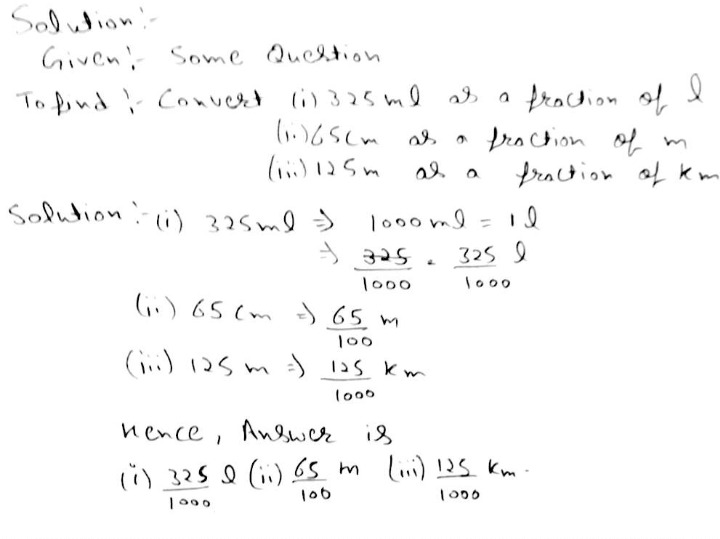 Solution:-
Given:- Some Question
To find :- Convert (i) 325 ml as a fraction of l
(ii) 65cm as a fraction of m
(iii) 125m as a fraction of km
Solution:- (i) 325ml ⇒ 1000 ml = 1 l
⇒ 325/1000 = 325/1000 l
(ii) 65 cm ⇒ 65/100 m
(iii) 125 m ⇒ 125/1000 km
Hence, Answer is
(i) 325/1000 l (ii) 65/100 m (iii) 125/1000 km.